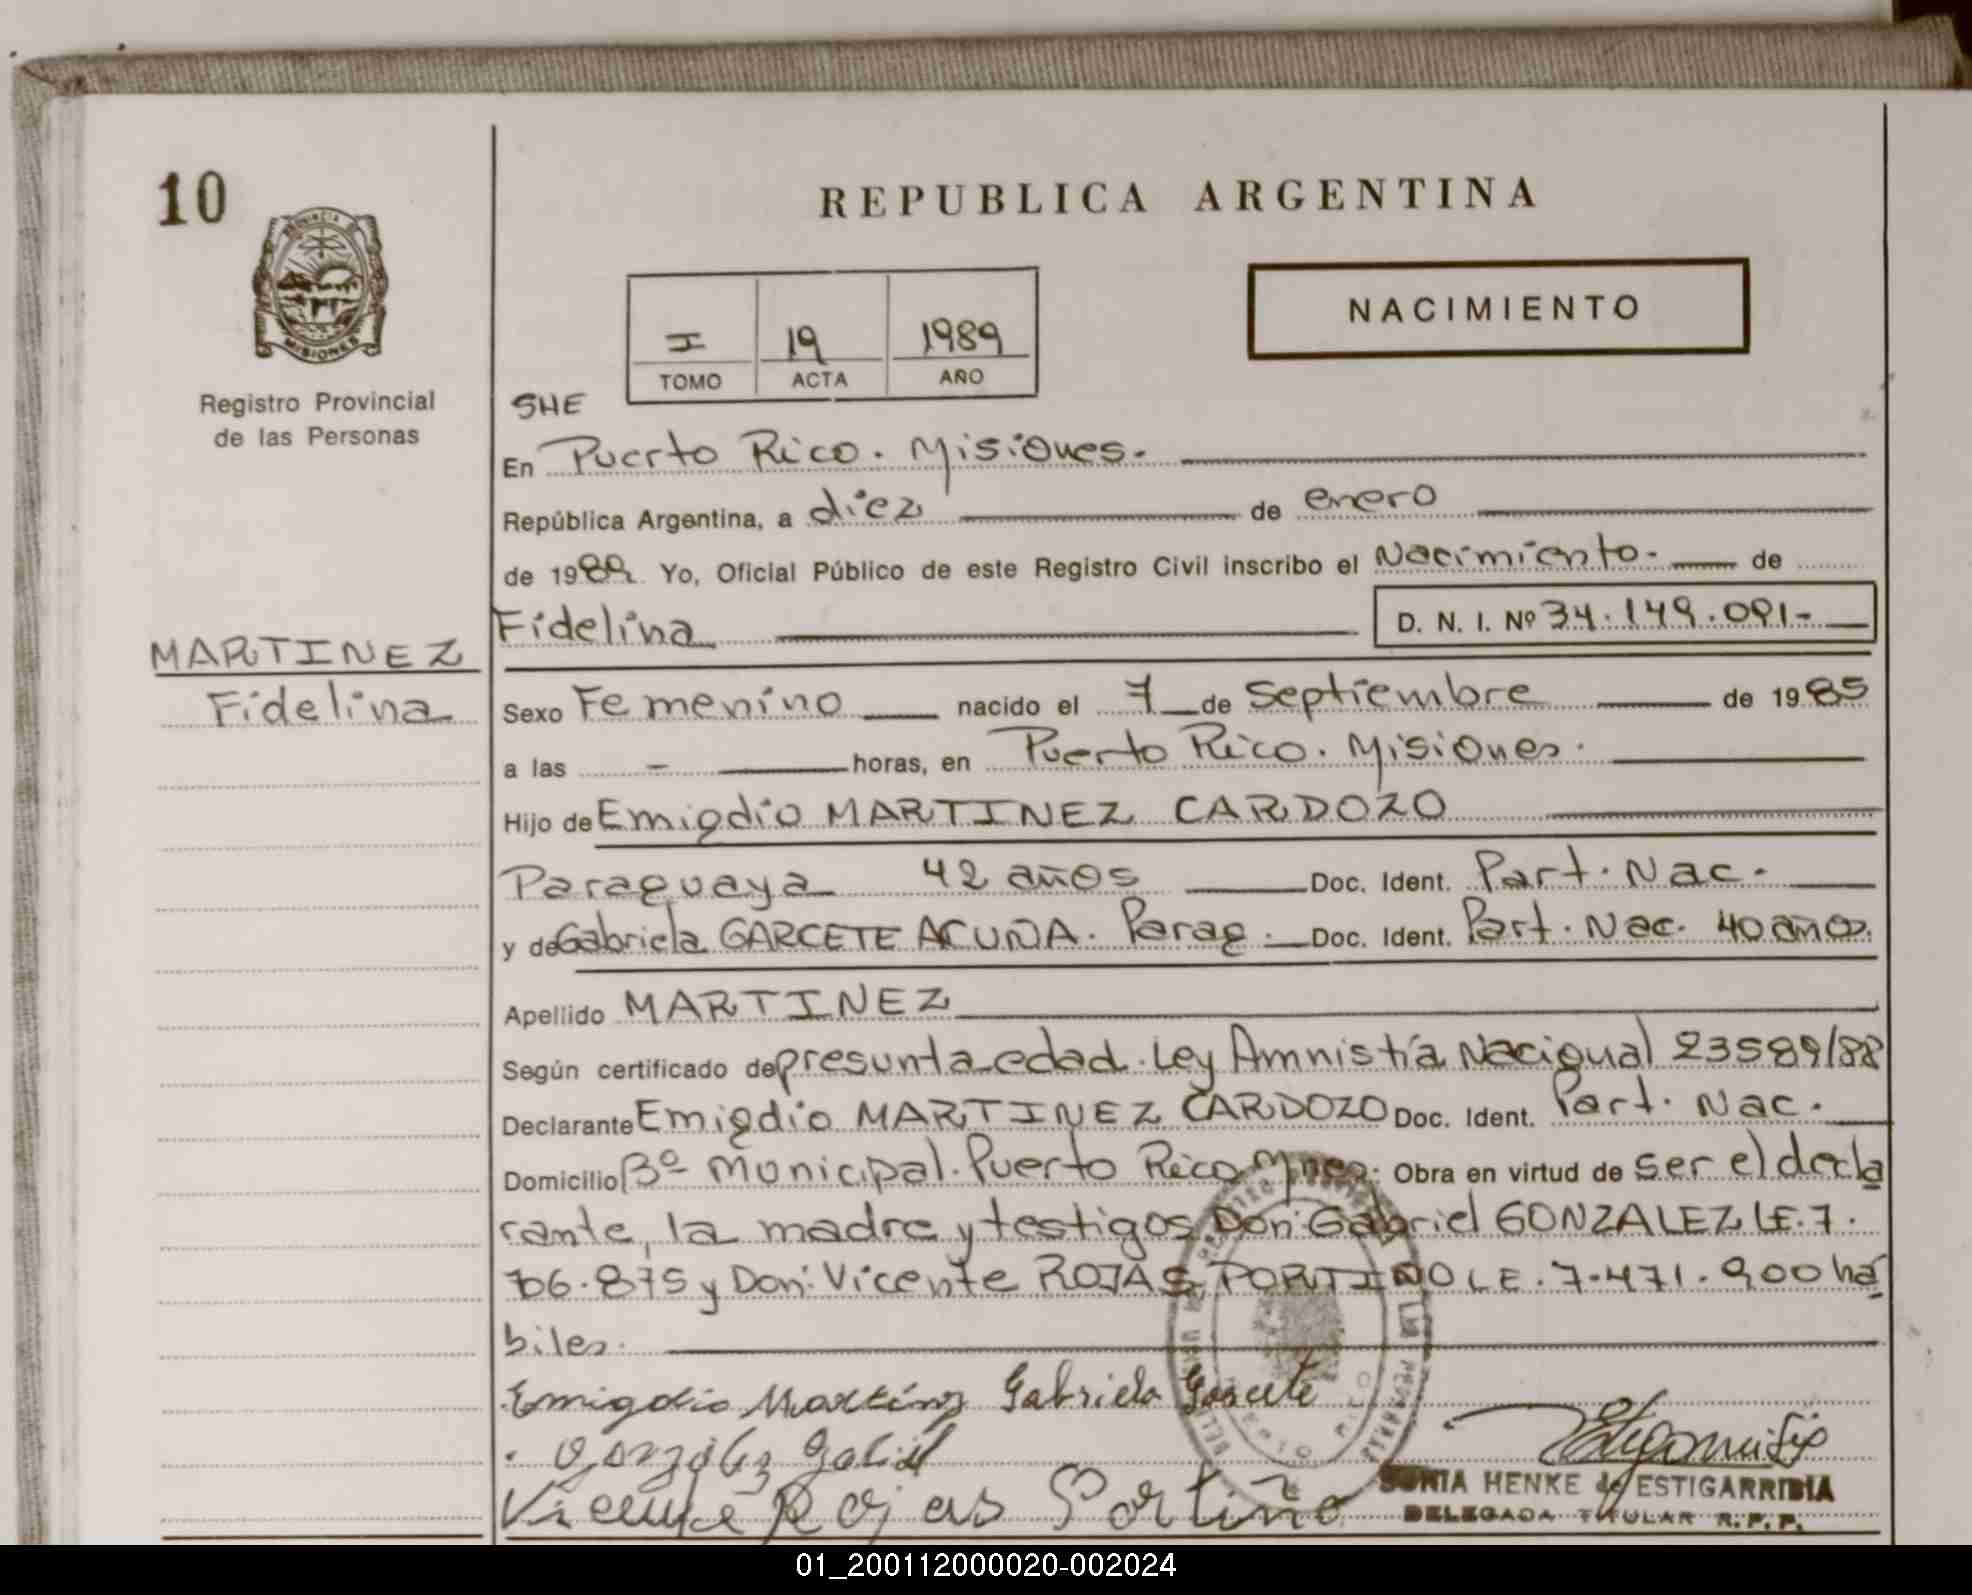 10
REPUBLICA ARGENTINA
NACIMIENTO
I 19 1989
TOMO ACTA AÑO
MISIONES
Registro Provincial
de las Personas
SHE
En Puerto Rico. Misiones.
República Argentina, a diez de enero
de 1989 Yo, Oficial Público de este Registro Civil inscribo el Nacimiento. de
Fidelina D. N. I. Nº 34.149.091-
MARTINEZ
Fidelina
Sexo Femenino nacido el 7 de Septiembre de 1985
a las - horas, en Puerto Rico. Misiones.
Hijo de Emigdio MARTINEZ CARDOZO
Paraguaya 42 años Doc. Ident. Part. Nac.
y de Gabriela GARCETE ACUÑA. Parag. Doc. Ident. Part. Nac. 40 años.
Apellido MARTINEZ
Según certificado de presunta edad. Ley Amnistía Nacional 23589/88
Declarante Emigdio MARTINEZ CARDOZO Doc. Ident. Part. Nac.
Domicilio Bº Municipal. Puerto Rico Mnes. Obra en virtud de ser el decla
rante, la madre y testigos Don: Gabriel GONZALEZ LE. 7.
706.875 y Don: Vicente ROJAS PORTIÑO LE. 7.471.900 há
biles.
Emigdio Martínez Gabriela Garcete
Gonzalez Gabriel
Vicente Rojas Portiño
SONIA HENKE de ESTIGARRIBIA
DELEGADA TITULAR R.P.P.
01_200112000020-002024